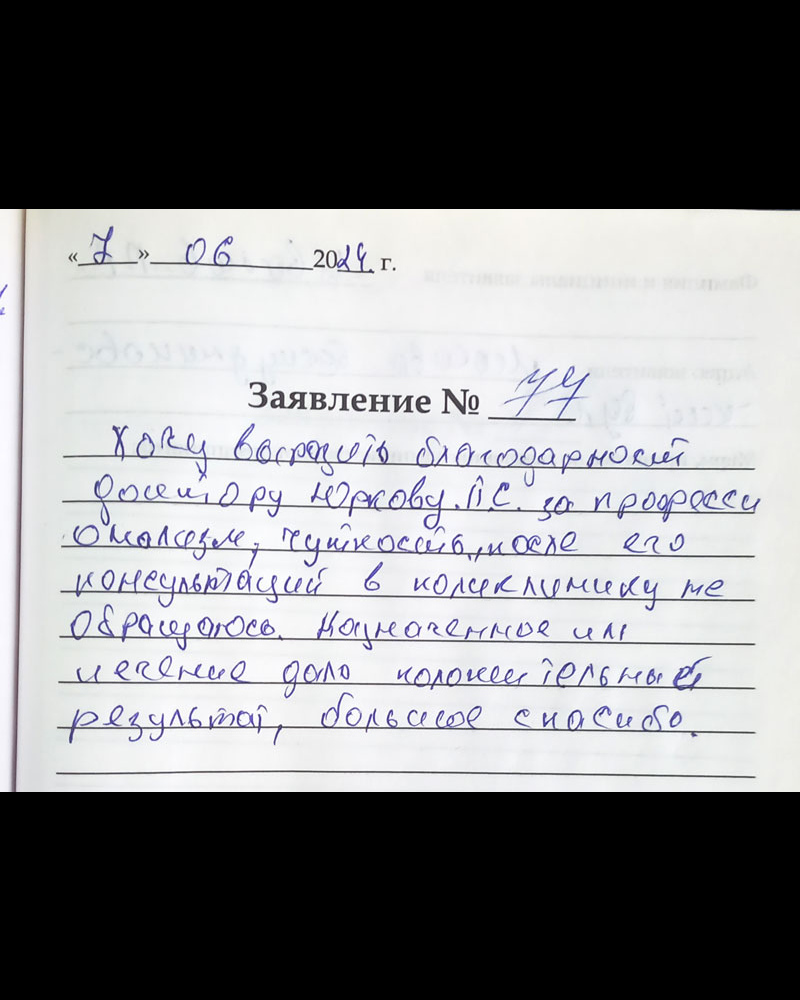 «7» 06 2024 г.
Заявление № 77
Хочу выразить благодарность
доктору Юркову П.С. за професси
онализм, чуткость, после его
консультаций в поликлинику не
обращаюсь. Назначенное им
лечение дало положительный
результат, большое спасибо.